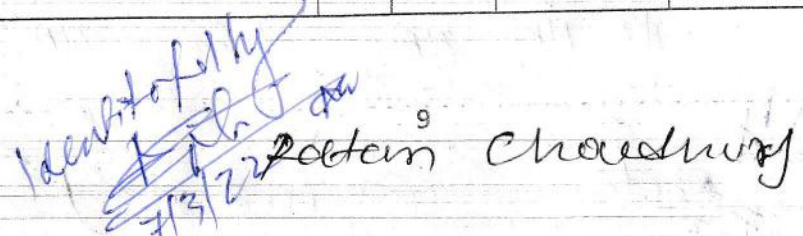 Identified by
7/3/22
9
Ratan Choudhury